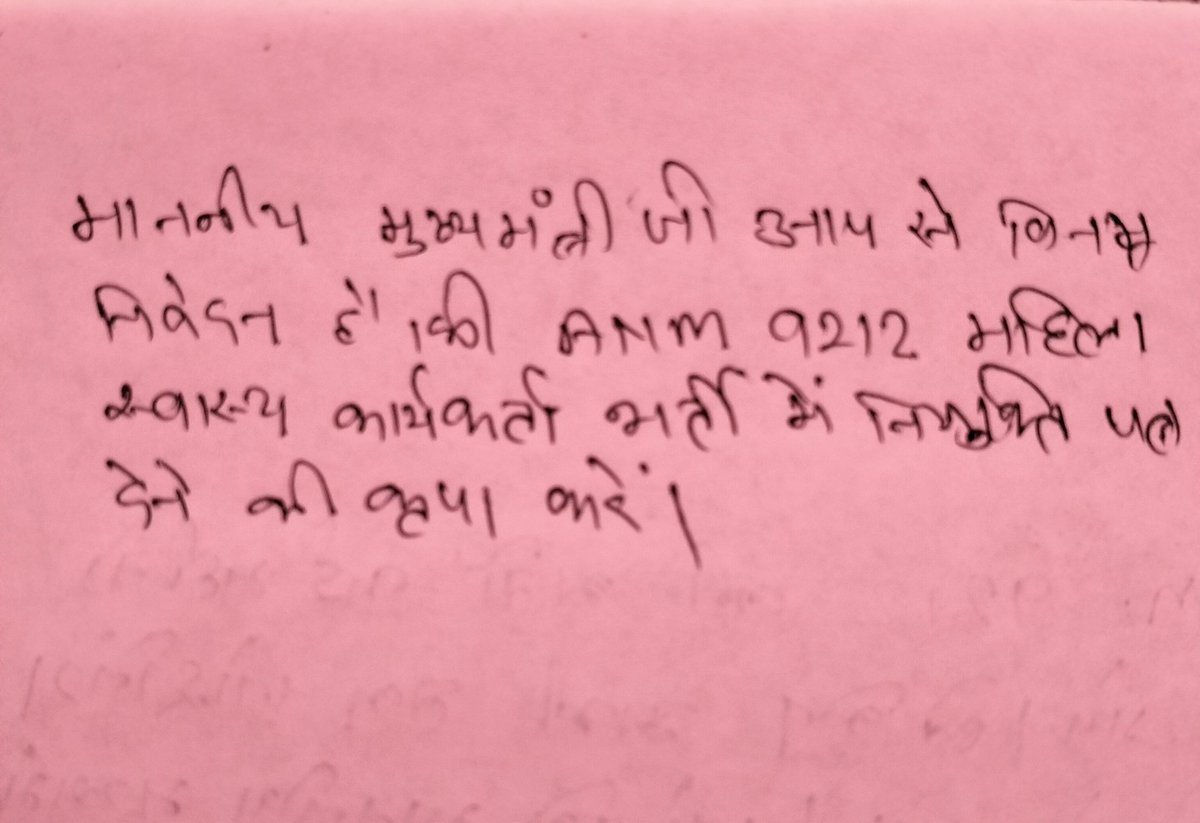 माननीय मुख्यमंत्री जी आप से विनम्र
निवेदन हैं कि ANM 9212 महिला
स्वास्थ्य कार्यकर्ता भर्ती में नियुक्ति पत्र
देने की कृपा करें।